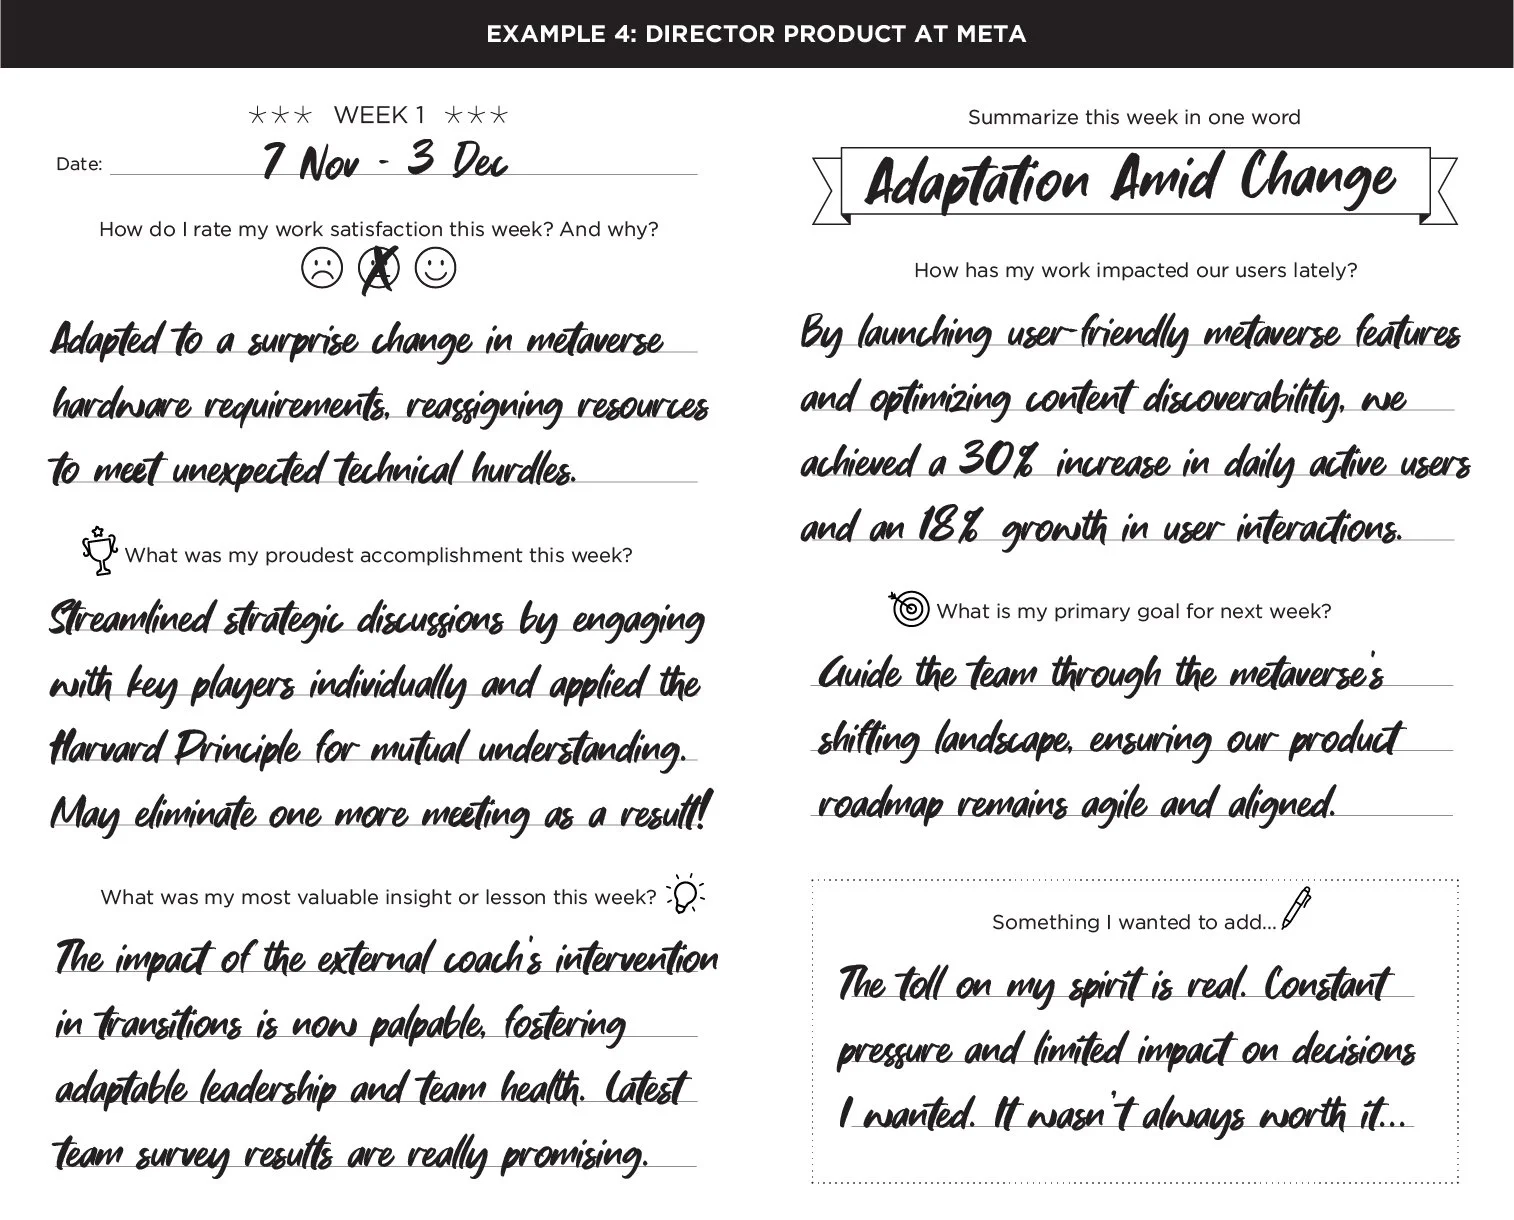 EXAMPLE 4: DIRECTOR PRODUCT AT META
WEEK 1
Date: 7 Nov - 3 Dec
How do I rate my work satisfaction this week? And why?
Adapted to a surprise change in metaverse
hardware requirements, reassigning resources
to meet unexpected technical hurdles.
What was my proudest accomplishment this week?
Streamlined strategic discussions by engaging
with key players individually and applied the
Harvard Principle for mutual understanding.
May eliminate one more meeting as a result!
What was my most valuable insight or lesson this week?
The impact of the external coach's intervention
in transitions is now palpable, fostering
adaptable leadership and team health. Latest
team survey results are really promising.
Summarize this week in one word
Adaptation Amid Change
How has my work impacted our users lately?
By launching user-friendly metaverse features
and optimizing content discoverability, we
achieved a 30% increase in daily active users
and an 18% growth in user interactions.
What is my primary goal for next week?
Guide the team through the metaverse's
shifting landscape, ensuring our product
roadmap remains agile and aligned.
Something I wanted to add...
The toll on my spirit is real. Constant
pressure and limited impact on decisions
I wanted. It wasn't always worth it...